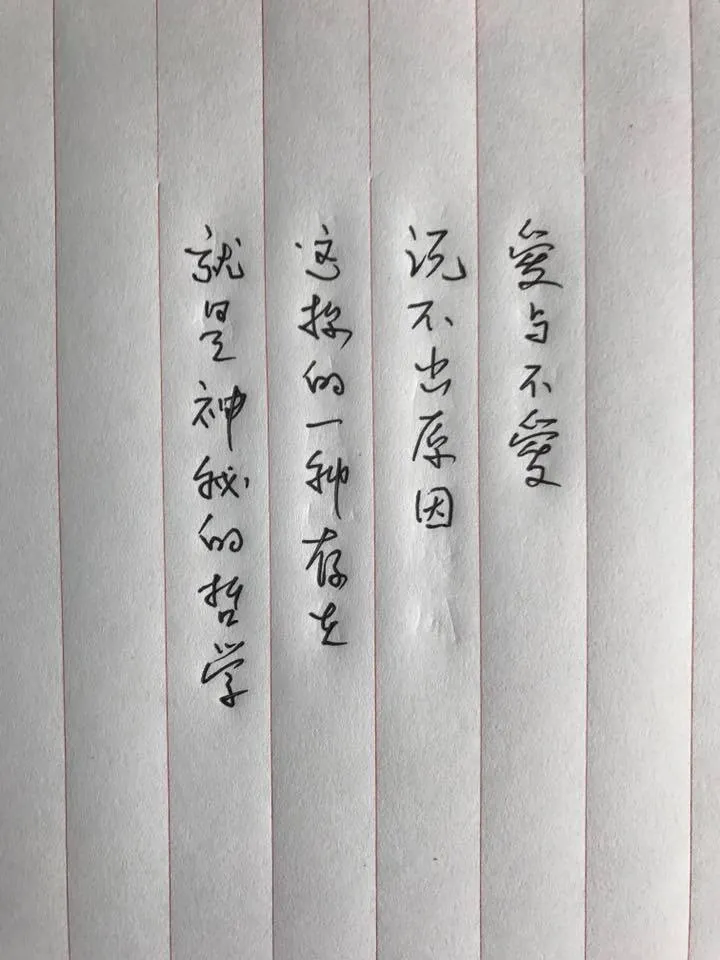 爱与不爱
说不出原因
这样的一种存在
就是神我的哲学